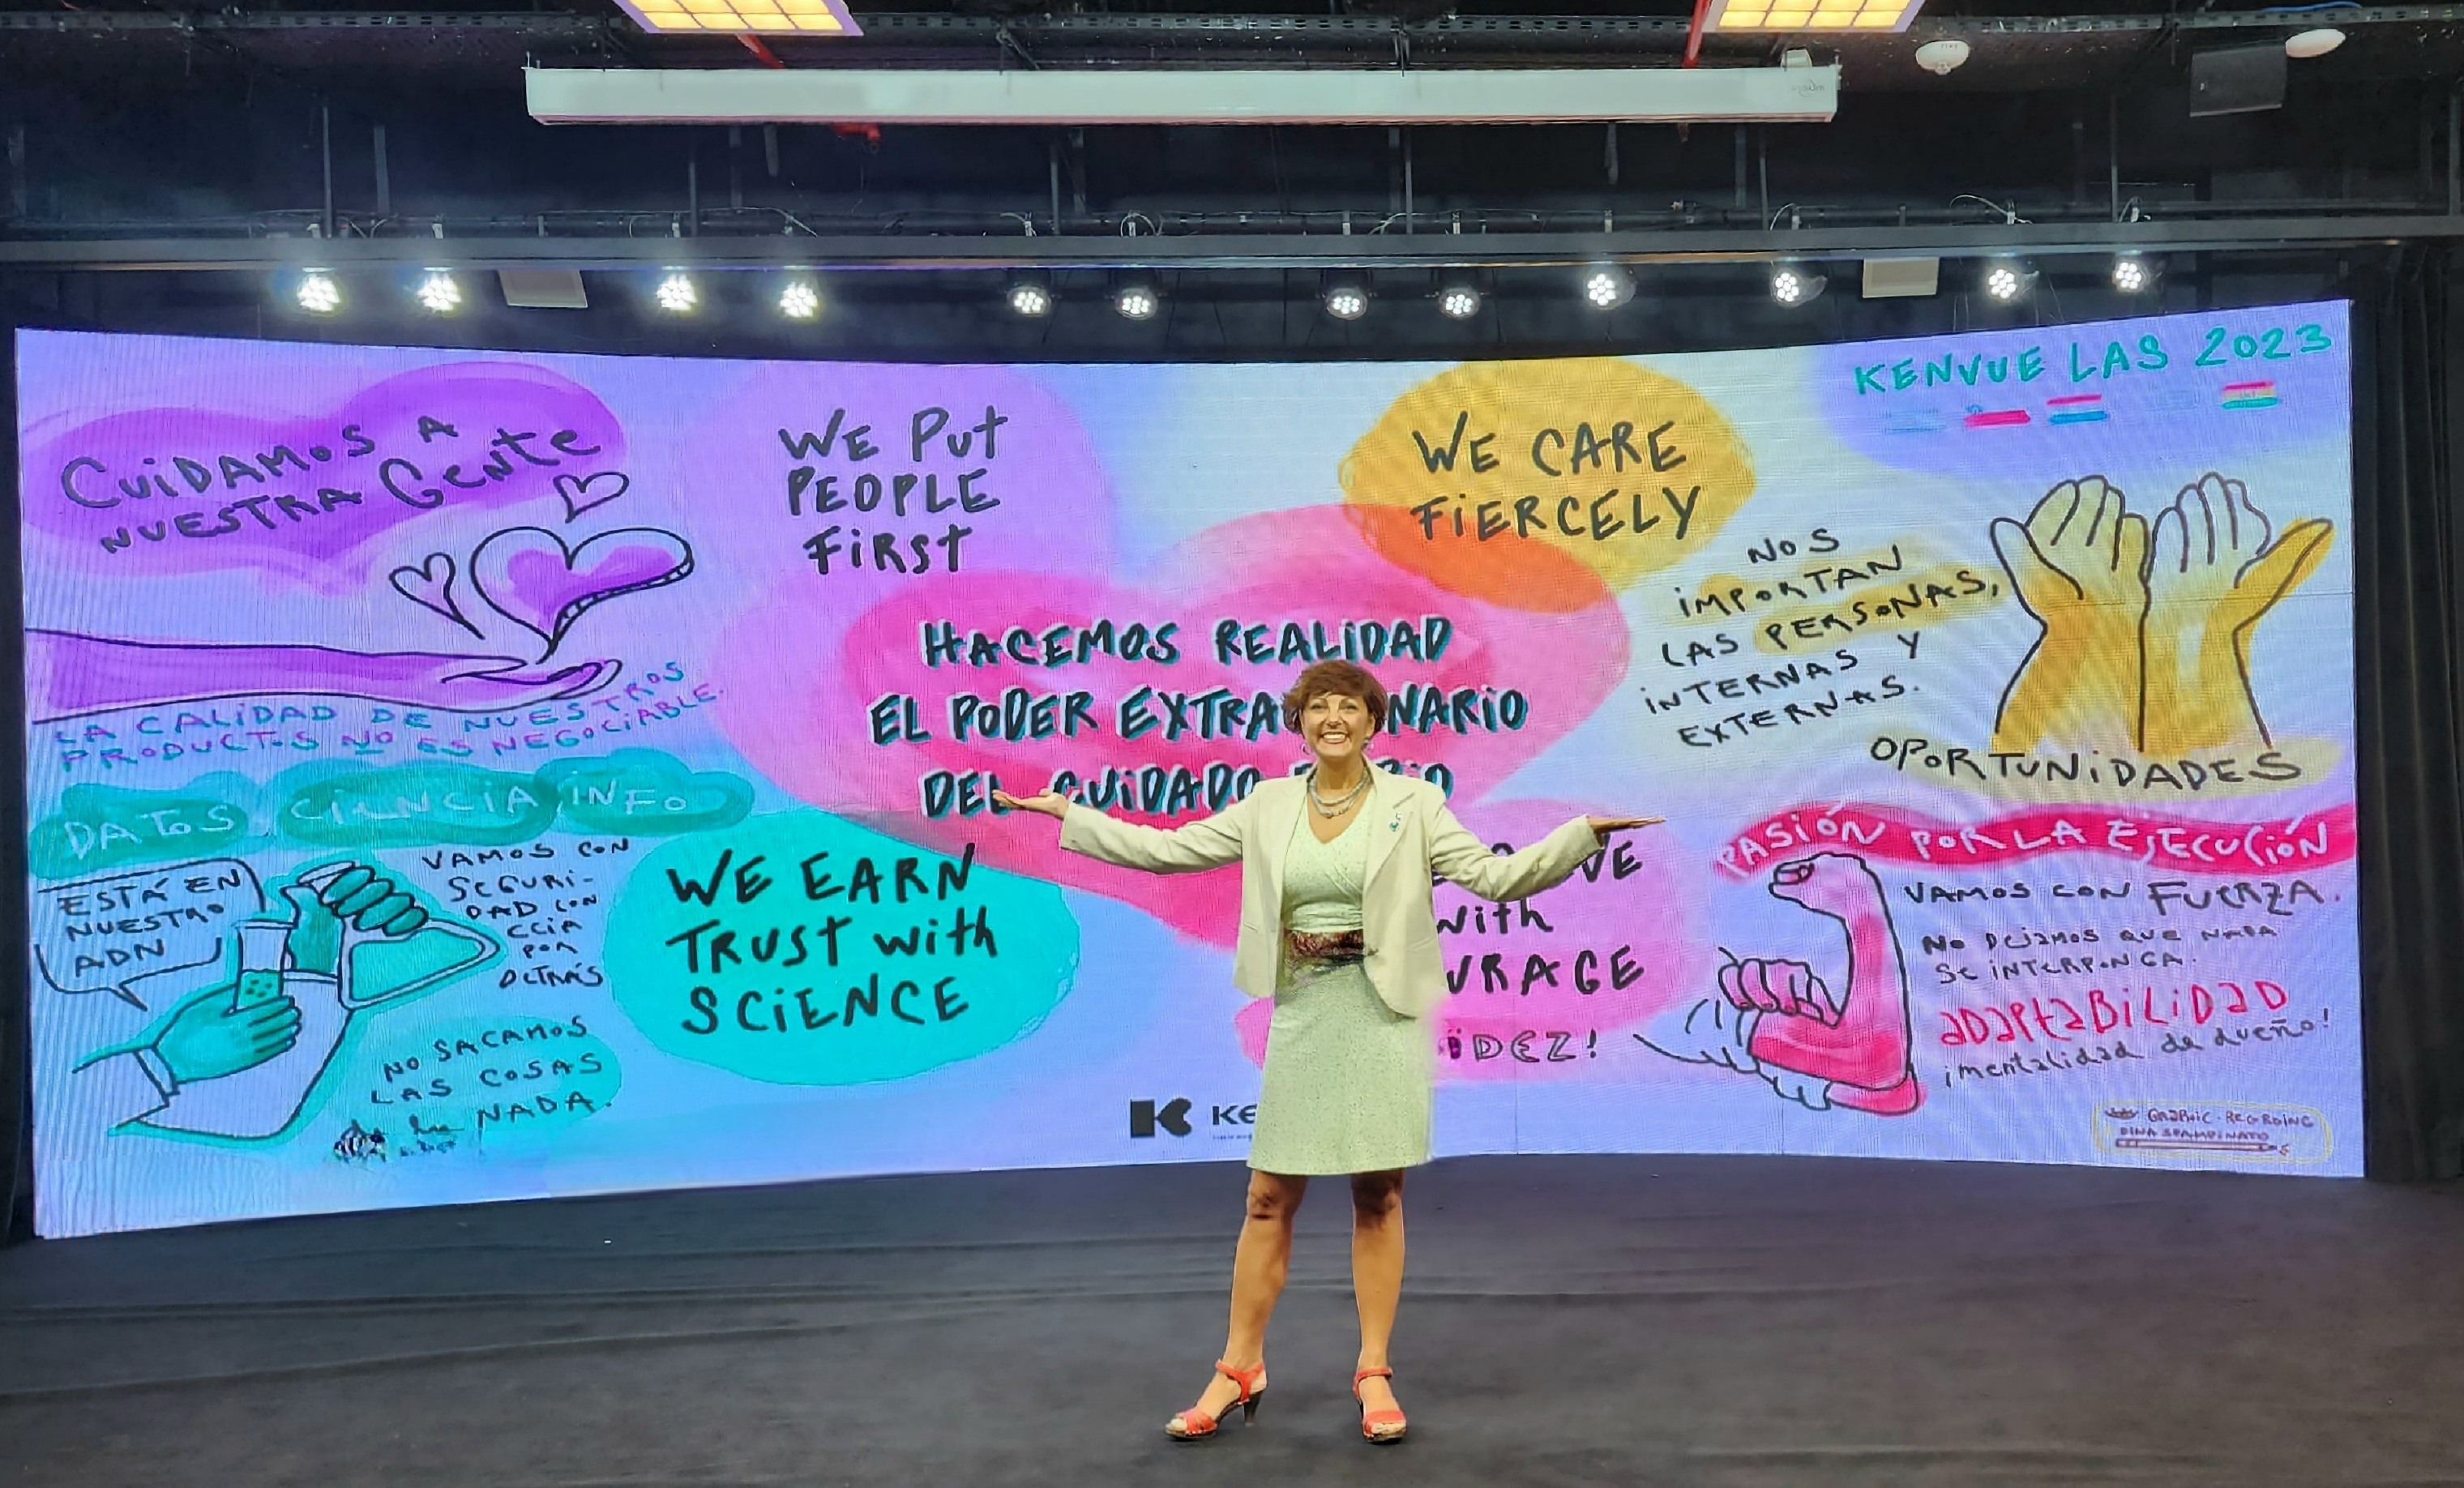 KENVUE LAS 2023
CUIDAMOS A
NUESTRA GENTE
LA CALIDAD DE NUESTROS
PRODUCTOS NO ES NEGOCIABLE.
DATOS CIENCIA INFO
ESTÁ EN
NUESTRO
ADN
VAMOS CON
SEGURI-
DAD CON
CCIA
POR
DETRÁS
NO SACAMOS
LAS COSAS
de la NADA.
WE PUT
PEOPLE
FIRST
WE CARE
FIERCELY
HACEMOS REALIDAD
EL PODER EXTRA NARIO
DEL CUIDADO
WE EARN
TRUST with
SCIENCE
VE
with
URAGE
DEZ!
KE
NOS
IMPORTAN
LAS PERSONAS,
INTERNAS Y
EXTERNAS.
OPORTUNIDADES
PASIÓN POR LA EJECUCIÓN
VAMOS CON FUERZA.
NO DEJAMOS QUE NADA
SE INTERPONGA.
ADAPTABILIDAD
¡mentalidad de dueño!
GRAPHIC·RECORDING
DINA SPAMPINATO